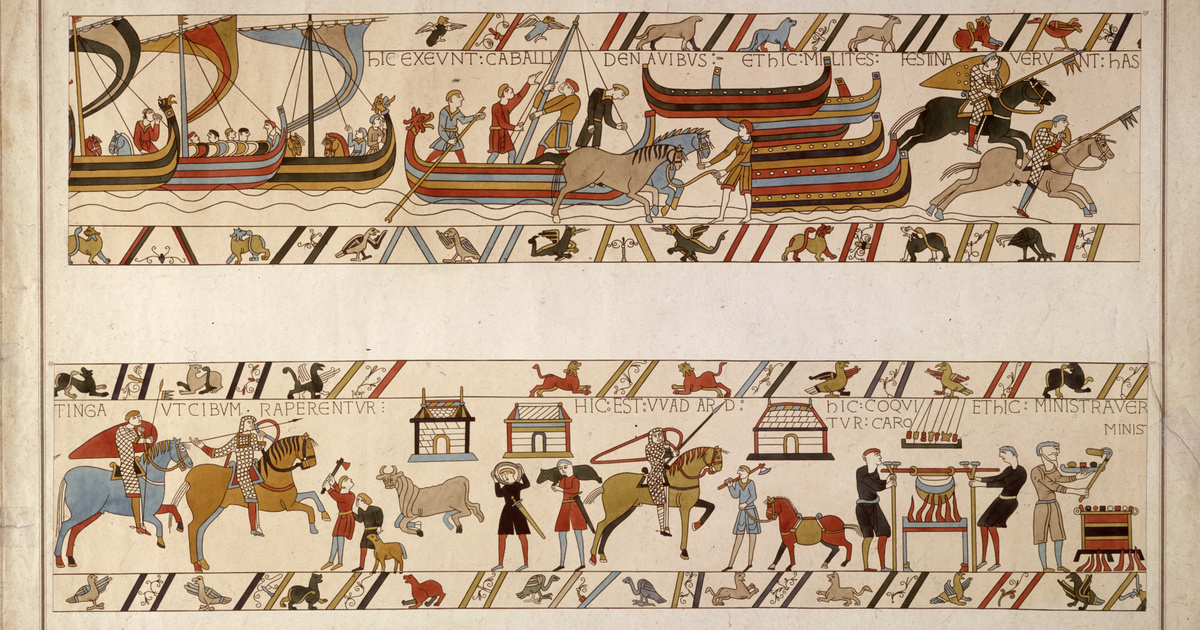 HIC EXEVNT : CABALLI DE NAVIBUS :- ET HIC : MILITES : FESTINA VERV NT : HAS
TINGA VT CIBVM · RAPERENTVR : HIC : EST : VVAD AR D : HIC : COQVI ET HIC : MINISTRAVER
TVR : CARO MINIS